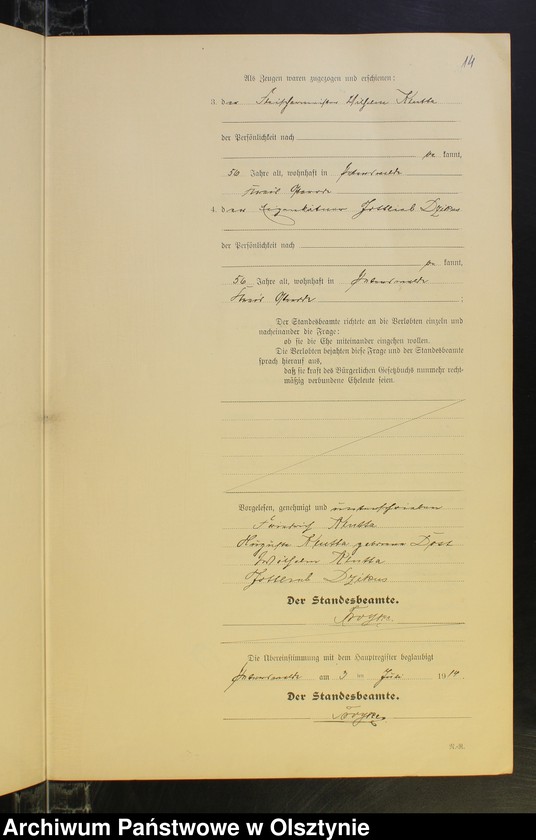 14
Als Zeugen waren zugezogen und erschienen:
3. der Fleischermeister Wilhelm Klutta
der Persönlichkeit nach
be kannt,
56 Jahre alt, wohnhaft in
Kreis Osterode
4. der Eigenkätner Gottlieb Dzikus
der Persönlichkeit nach
be kannt,
56 Jahre alt, wohnhaft in
Kreis Osterode ;
Der Standesbeamte richtete an die Verlobten einzeln und
nacheinander die Frage:
ob sie die Ehe miteinander eingehen wollen.
Die Verlobten bejahten diese Frage und der Standesbeamte
sprach hierauf aus,
daß sie kraft des Bürgerlichen Gesetzbuchs nunmehr recht-
mäßig verbundene Eheleute seien.
Vorgelesen, genehmigt und unterschrieben
Friedrich Klutta
Auguste Klutta geborene
Wilhelm Klutta
Gottlieb Dzikus
Der Standesbeamte.
Die Übereinstimmung mit dem Hauptregister beglaubigt
am 3 ten Juli 19
Der Standesbeamte.
N.-R.
Archiwum Państwowe w Olsztynie